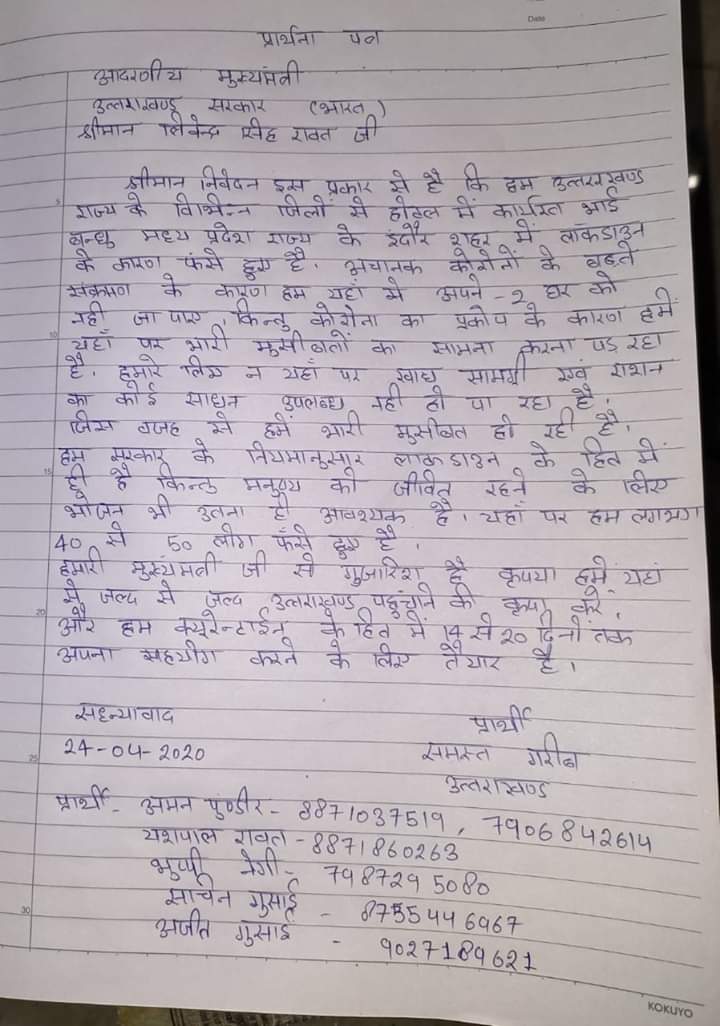 Date
प्रार्थना पत्र
आदरणीय मुख्यमंत्री
उत्तराखण्ड सरकार (भारत)
श्रीमान त्रिवेन्द्र सिंह रावत जी
श्रीमान निवेदन इस प्रकार से है कि हम उत्तराखण्ड
5 राज्य के विभिन्न जिलों से होटल में कार्यरत भाई
बन्धु मध्य प्रदेश राज्य के इंदौर शहर में लाकडाउन
के कारण फंसे हुए है. अचानक कोरोनों के बढ़ते
संक्रमण के कारण हम यहाँ से अपने-2 घर को
10 नहीं जा पाए, किन्तु कोरोना का प्रकोप के कारण हमें
यहाँ पर भारी मुसीबतों का सामना करना पड़ रहा
है. हमारे लिए न यहाँ पर खाद्य सामग्री एवं राशन
का कोई साधन उपलब्ध नहीं हो पा रहा है.
जिस वजह से हमें भारी मुसीबत हो रही है.
हम सरकार के नियमानुसार लाकडाउन के हित में
15 ही है किन्तु मनुष्य को जीवित रहने के लिए
भोजन भी उतना ही आवश्यक है. यहाँ पर हम लगभग
40 से 50 लोग फँसे हुए है.
हमारी मुख्यमंत्री जी से गुजारिश है कृपया हमें यहां
20 से जल्द से जल्द उत्तराखण्ड पहुंचाने की कृपा करें,
और हम क्यूरेन्टाईन के हित में 14 से 20 दिनों तक
अपना सहयोग करने के लिए तैयार है.
सधन्यावाद
प्रार्थी
25 24-04-2020
समस्त गरीब
उत्तराखण्ड
प्रार्थी - अमन पुण्डीर - 8871037519, 7906842614
यशपाल रावत - 8871860263
भुप्पी नेगी - 7987295080
सचिन गुसाई - 8755446967
30 अजीत गुसाई - 9027189621
KOKUYO